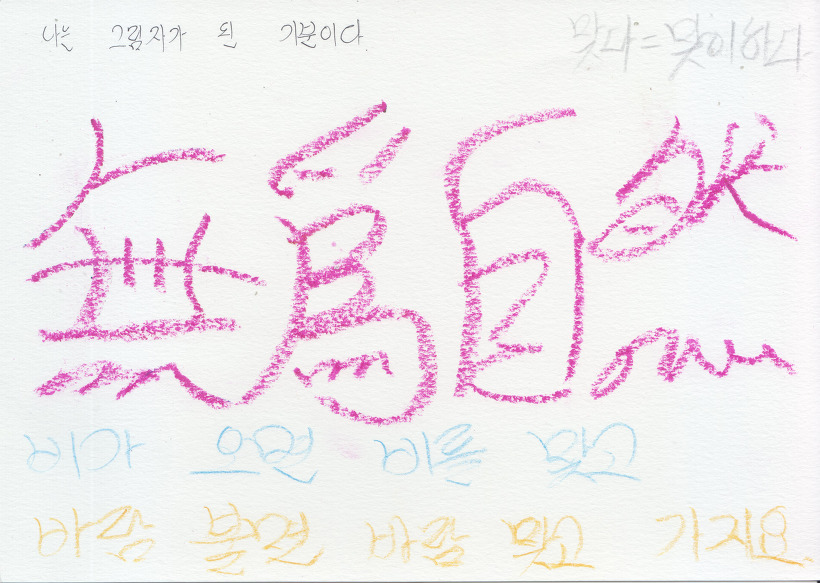 나는 그림자가 된 기분이다.
맞다=맞이하다
無爲自然
비가 오면 비를 맞고
바람 불면 바람 맞고 가지요.